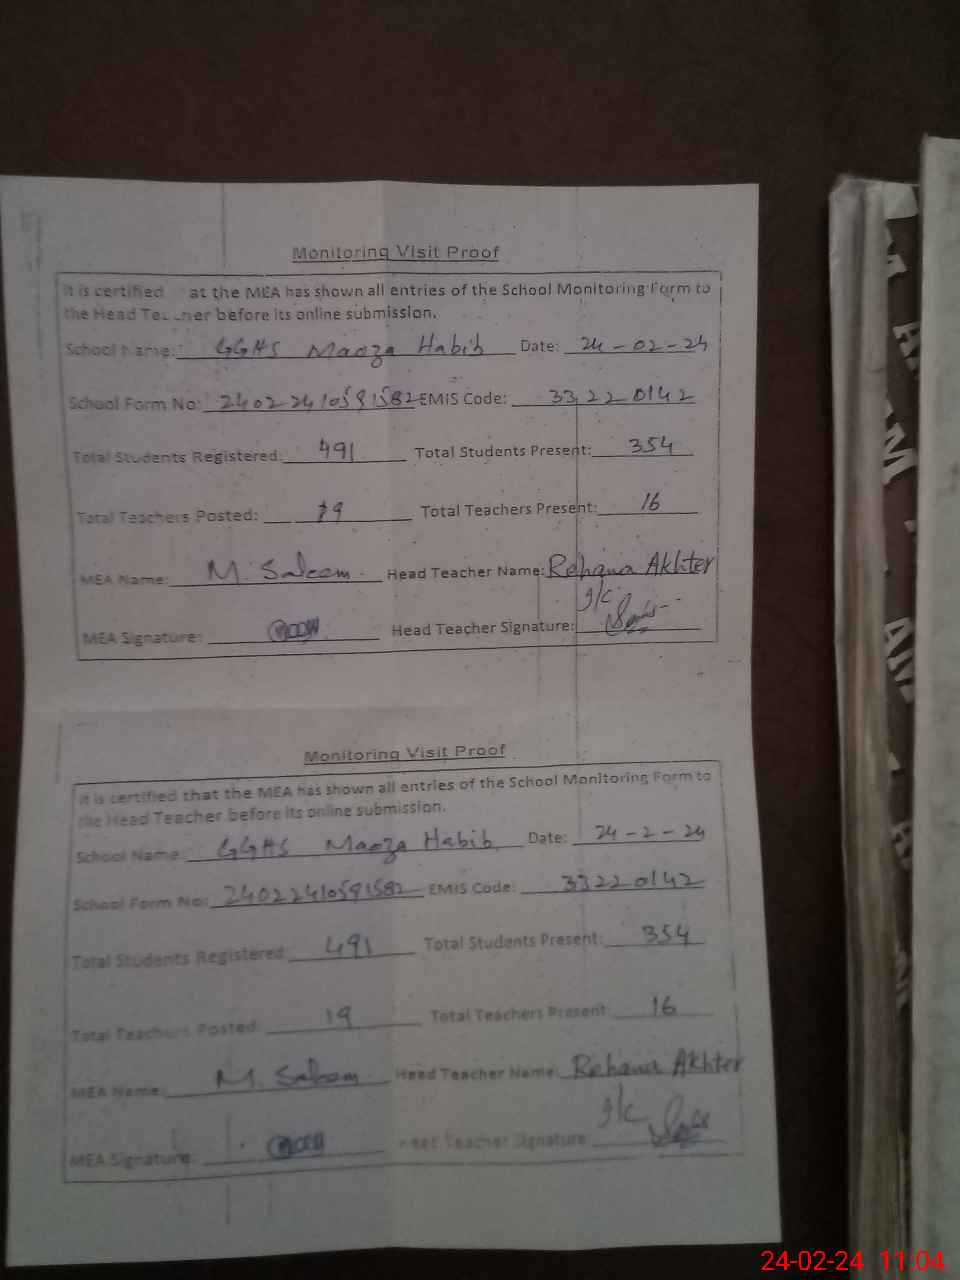 Monitoring Visit Proof
It is certified at the MEA has shown all entries of the School Monitoring Form to
the Head Teacher before its online submission.
School Name: GGHS Maoza Habib Date: 24-02-24
School Form No: 24022410591582 EMIS Code: 33220142
Total Students Registered: 491 Total Students Present: 354
Total Teachers Posted: 19 Total Teachers Present: 16
MEA Name: M. Saleem Head Teacher Name: Rehana Akhter
I/C
MEA Signature: Head Teacher Signature:
Monitoring Visit Proof
It is certified that the MEA has shown all entries of the School Monitoring Form to
the Head Teacher before its online submission.
School Name: GGHS Maoza Habib Date: 24-2-24
School Form No: 24022410591582 EMIS Code: 33220142
Total Students Registered: 491 Total Students Present: 354
Total Teachers Posted: 19 Total Teachers Present: 16
MEA Name: M. Saleem Head Teacher Name: Rehana Akhter
I/C
MEA Signature: Head Teacher Signature:
24-02-24 11:04